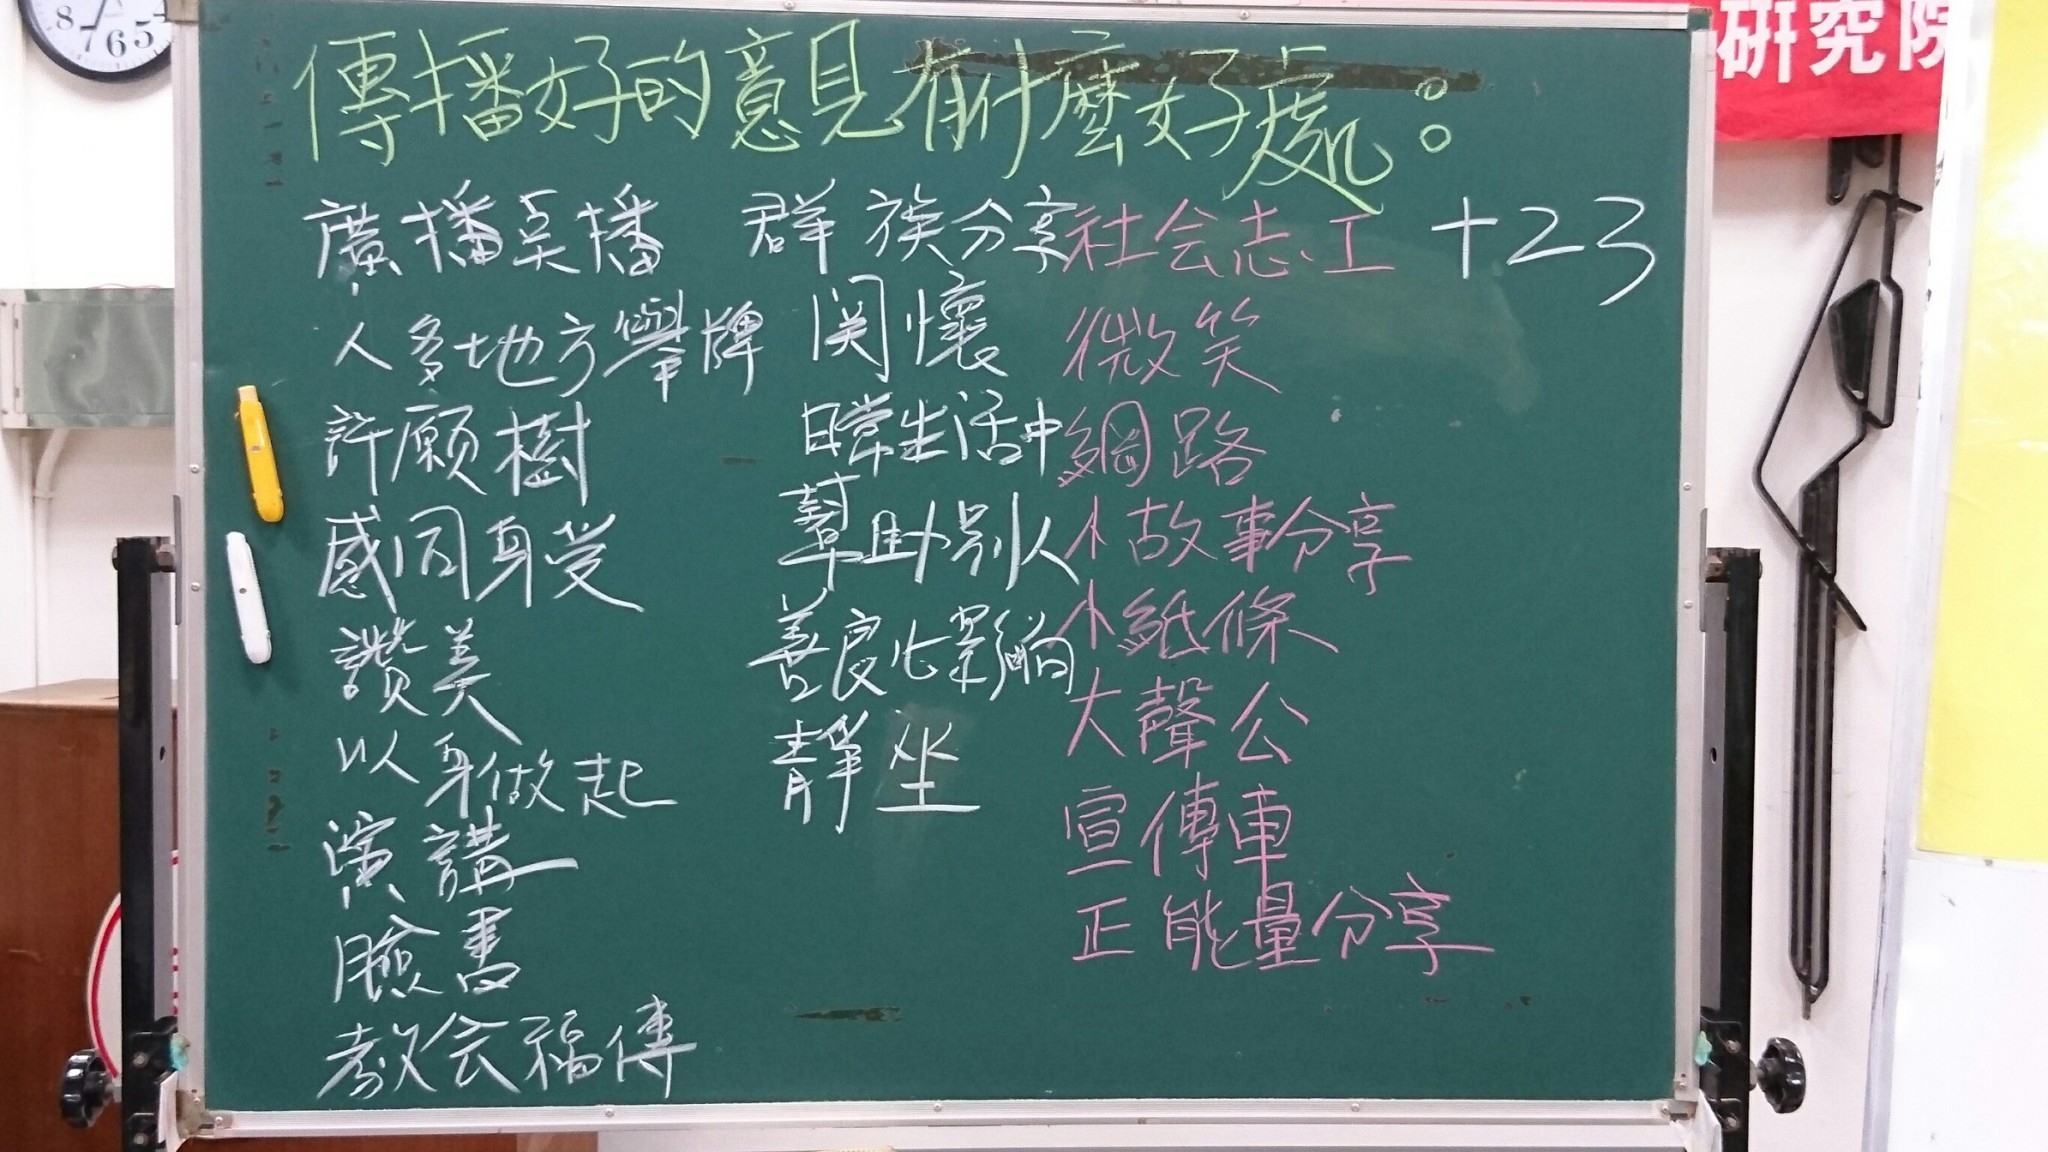 8 7 6 5
研究院
傳播好的意見有什麼好處：
廣播
人多地方舉牌
許願樹
感同身受
讚美
以身做起
演講
臉書
教会福傳
群族分享
関懷
日常生活中
幫助別人
善良心影响
靜坐
社会志工
微笑
網路
小故事分享
小紙條
大聲公
宣傳車
正能量分享
+23